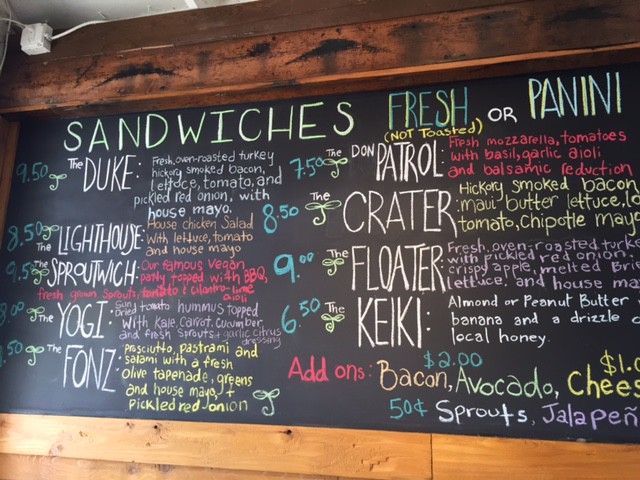 SANDWICHES
FRESH OR PANINI
(NOT Toasted)
9.50 The DUKE: Fresh, oven-roasted turkey
hickory smoked bacon,
lettuce, tomato, and
pickled red onion, with
house mayo.
8.50 The LIGHTHOUSE: House chicken Salad
With lettuce, tomato
and house mayo
9.5 The SPROUTWICH: Our famous Vegan
patty topped with BBQ,
fresh grown Sprouts, tomato & cilantro-lime
aioli
8.00 The YOGI: Sundried tomato hummus topped
With Kale, Carrot, Cucumber,
and fresh Sprouts + garlic citrus
dressing
.50 The FONZ: Prosciutto, Pastrami and
salami with a fresh
olive tapenade, greens
and house mayo, +
Pickled red onion
7.50 The DON PATROL: Fresh mozzarella, tomatoes
with basil, garlic aioli
and balsamic reduction
8.50 The CRATER: Hickory smoked bacon
maui butter lettuce,
tomato, Chipotle mayo
9.00 The FLOATER: Fresh, oven-roasted turk
with pickled red onion,
crispy apple, melted Brie
lettuce, and house ma
6.50 The KEIKI: Almond or Peanut Butter
banana and a drizzle o
local honey.
Add ons: $2.00 Bacon, Avocado, $1.0 Chees
50¢ Sprouts, Jalapeñ